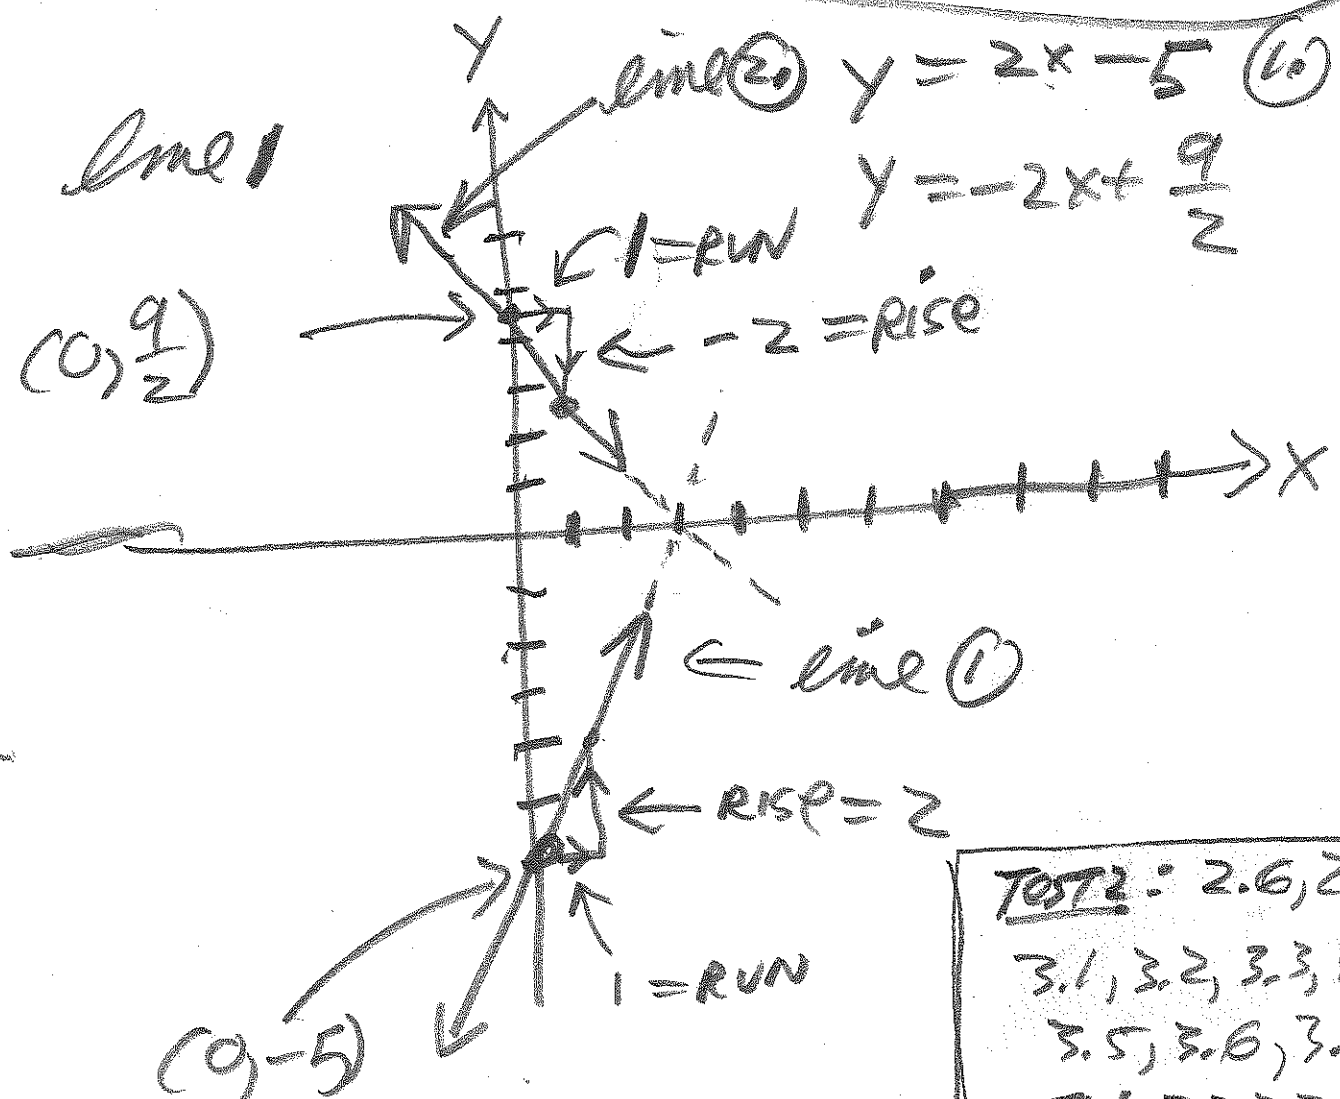 Y
line 2.
y = 2x - 5 1.
line 1
y = -2x + 9/2
1 = RUN
(0, 9/2)
-2 = RISE
X
line 1
RISE = 2
1 = RUN
(0, -5)
TEST 2: 2.6, 2
3.1, 3.2, 3.3,
3.5, 3.6, 3.